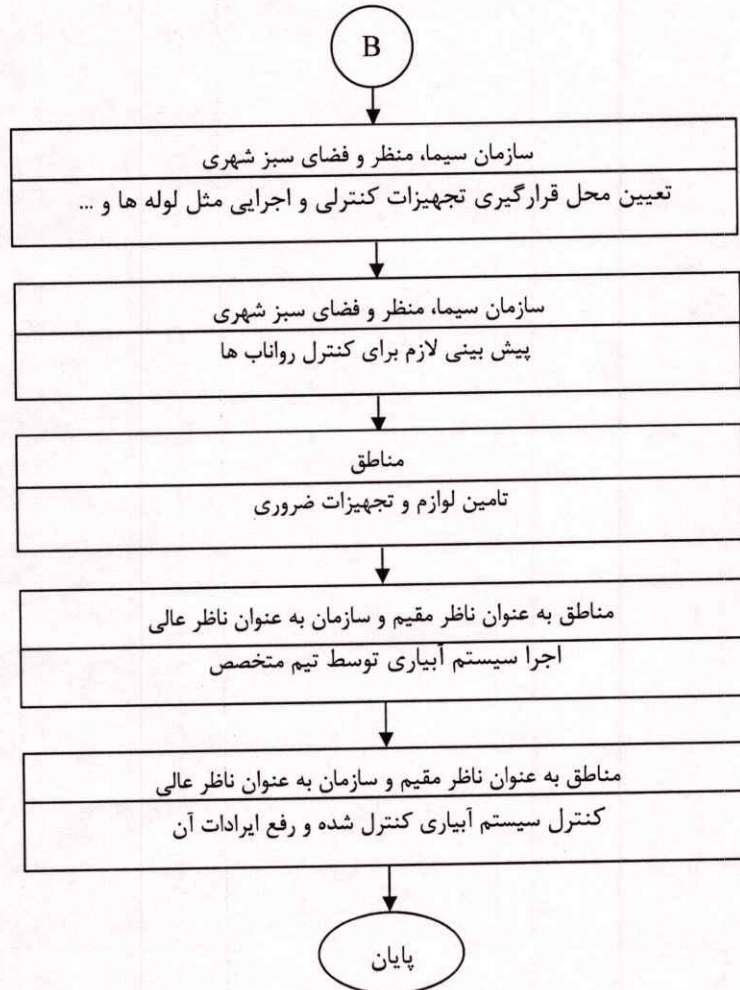 B
سازمان سیما، منظر و فضای سبز شهری
تعیین محل قرارگیری تجهیزات کنترلی و اجرایی مثل لوله ها و ...
سازمان سیما، منظر و فضای سبز شهری
پیش بینی لازم برای کنترل رواناب ها
مناطق
تامین لوازم و تجهیزات ضروری
مناطق به عنوان ناظر مقیم و سازمان به عنوان ناظر عالی
اجرا سیستم آبیاری توسط تیم متخصص
مناطق به عنوان ناظر مقیم و سازمان به عنوان ناظر عالی
کنترل سیستم آبیاری کنترل شده و رفع ایرادات آن
پایان